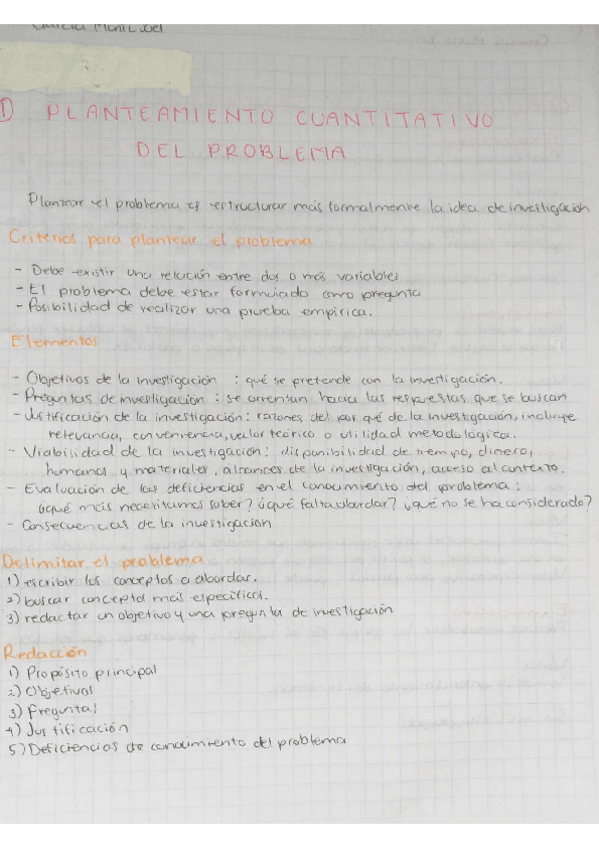 ① PLANTEAMIENTO CUANTITATIVO
DEL PROBLEMA
Plantear el problema es estructurar más formalmente la idea de investigación
Criterios para plantear el problema
- Debe existir una relación entre dos o más variables
- El problema debe estar formulado como pregunta
- Posibilidad de realizar una prueba empírica.
Elementos
- Objetivos de la investigación : qué se pretende con la investigación.
- Preguntas de investigación : se orientan hacia las respuestas que se buscan
- Justificación de la investigación: razones del por qué de la investigación, incluye
relevancia, conveniencia, valor teórico o utilidad metodológica.
- Viabilidad de la investigación: disponibilidad de tiempo, dinero,
humanos y materiales, alcances de la investigación, acceso al contexto.
- Evaluación de las deficiencias en el conocimiento del problema:
¿qué más necesitamos saber? ¿qué falta abordar? ¿qué no se ha considerado?
- Consecuencias de la investigación
Delimitar el problema
1) escribir los conceptos a abordar.
2) buscar conceptos más específicos.
3) redactar un objetivo y una pregunta de investigación
Redacción
1) Propósito principal
2) Objetivos
3) Preguntas
4) Justificación
5) Deficiencias de conocimiento del problema